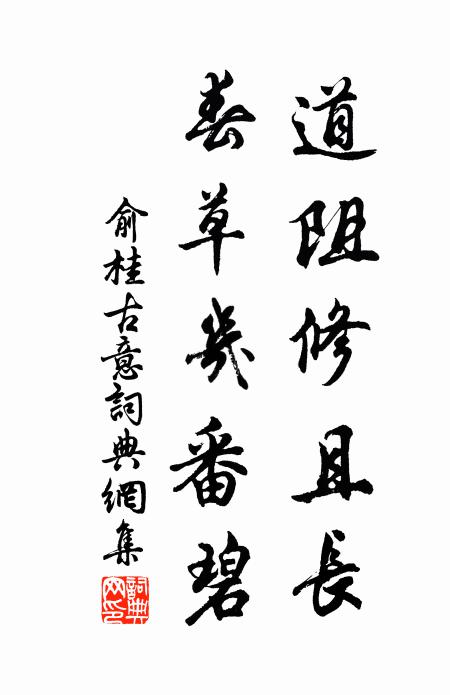 道阻修且長
春草幾番碧
俞桂古意詞典網集
詞典網印